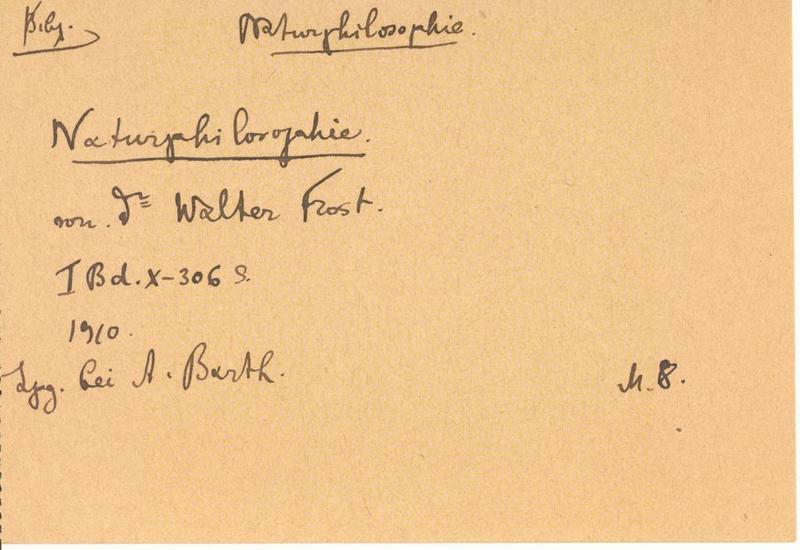 Bibl. Naturphilosophie.
Naturphilosophie.
von Dr Walter Frost.
I Bd. X-306 S.
1910.
Lpzg. bei A. Barth. M. 8.